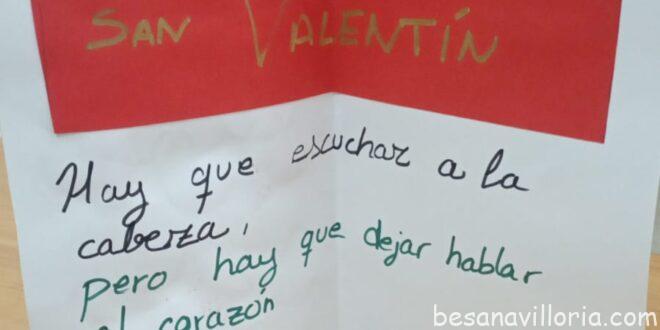 SAN VALENTÍN
Hay que escuchar a la
caberza,
pero hay que dejar hablar
el corazón
besanavilloria.com